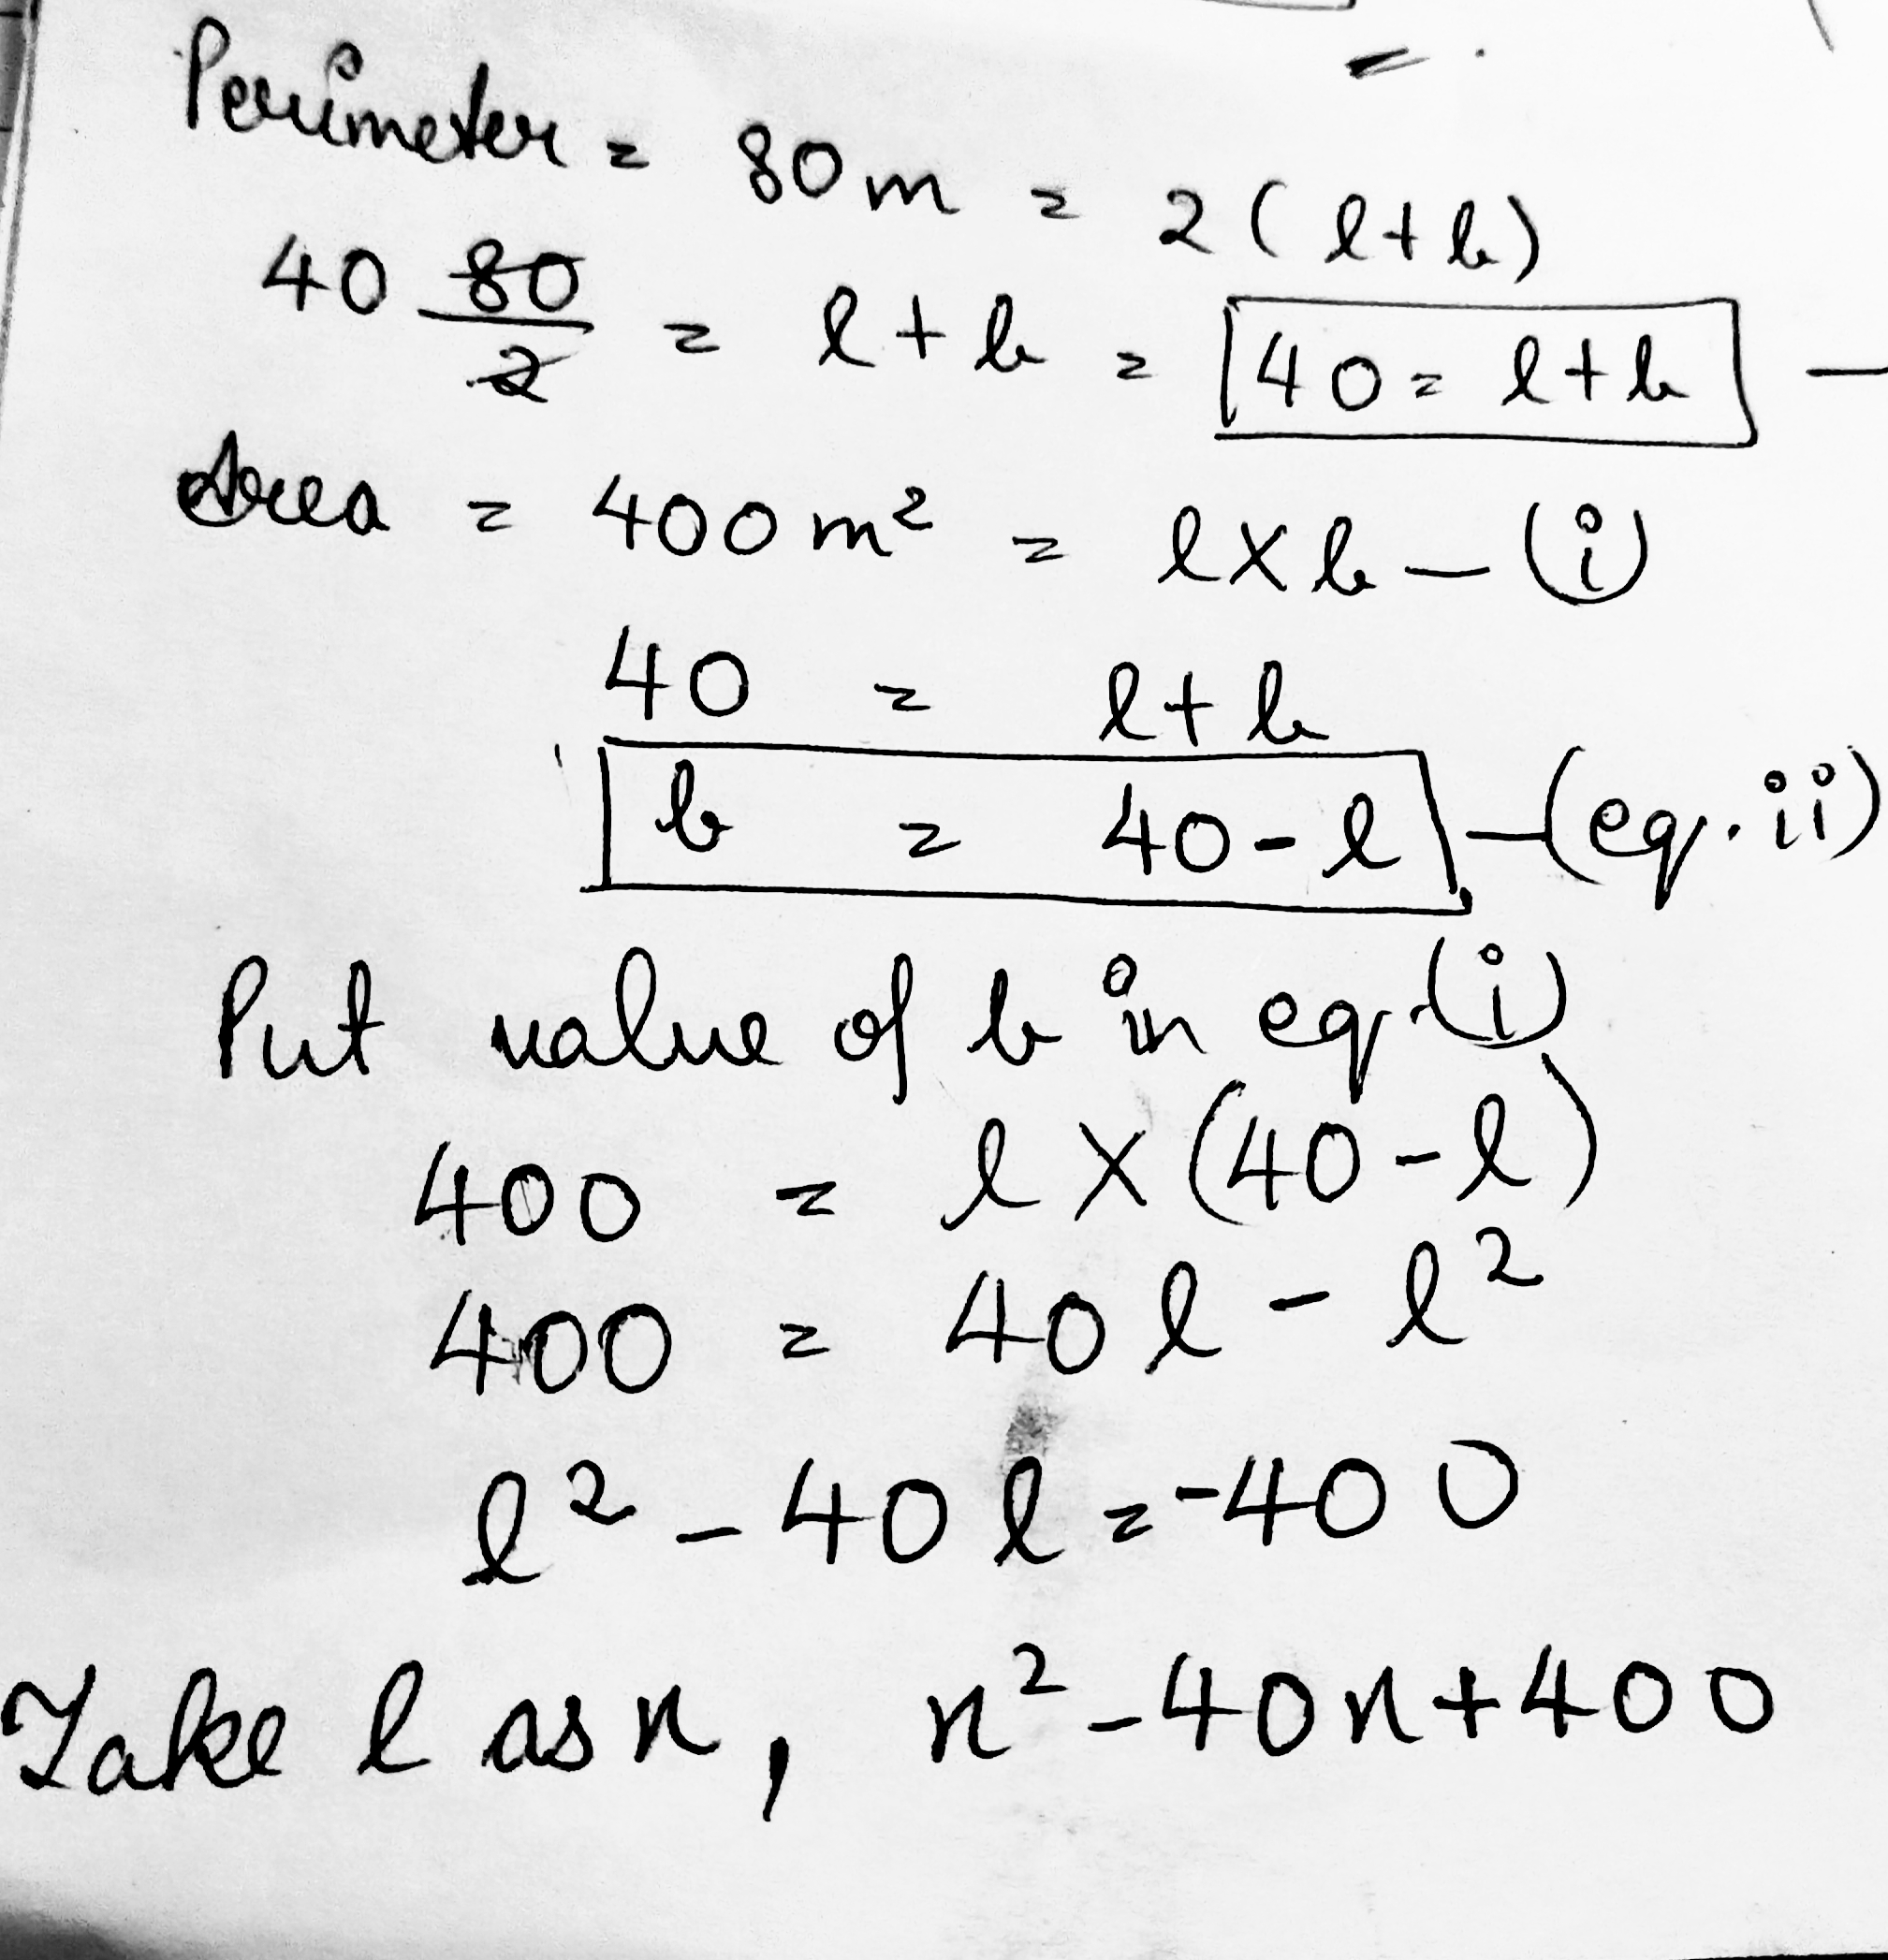 Perimeter = 80m = 2(l+b)
40 80/2 = l+b = 40 = l+b —
Area = 400m² = l×b — (i)
40 = l+b
b = 40-l — (eq. ii)
Put value of b in eq. (i)
400 = l×(40-l)
400 = 40l - l²
l² - 40l = -400
Take l as x, x² - 40x + 400